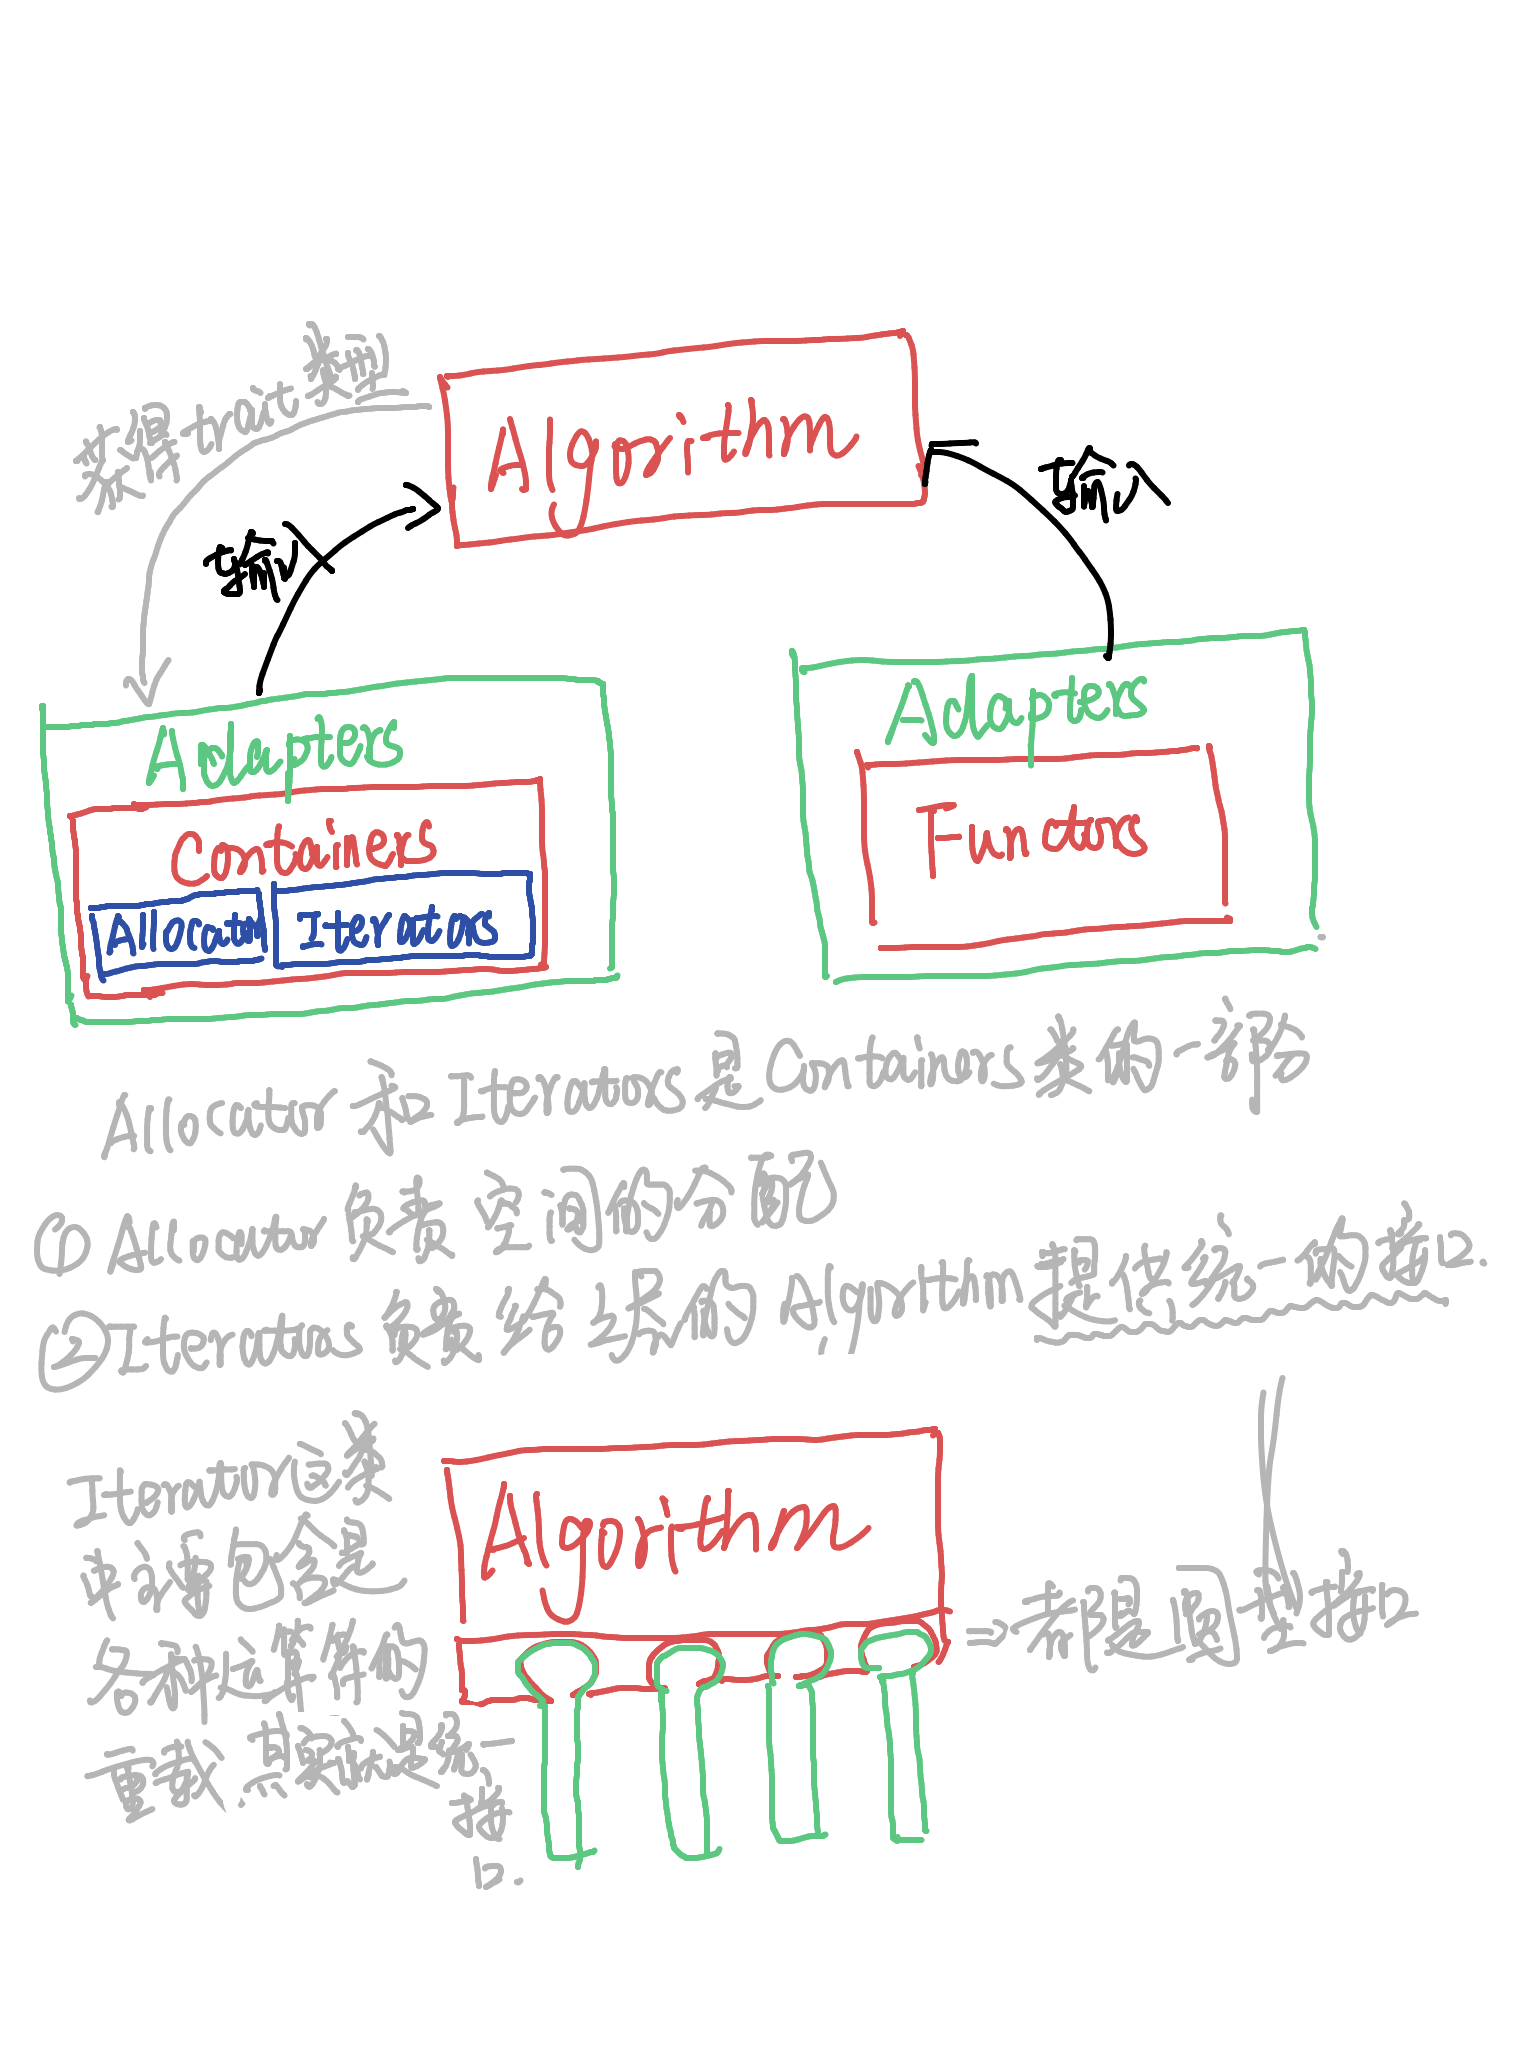 获得trait类型
Algorithm
输入
输入
Adapters
Containers
Allocator
Iterators
Adapters
Functors
Allocator 和 Iterators 是 Containers 类的一部分
① Allocator 负责 空间的分配
② Iterators 负责 给 的 Algorithm 提供统一的接口.
Iterator 这类
中主要包含是
各种运算符的
重载.其实就是统一
接
口.
Algorithm
=> 都是圆型接口